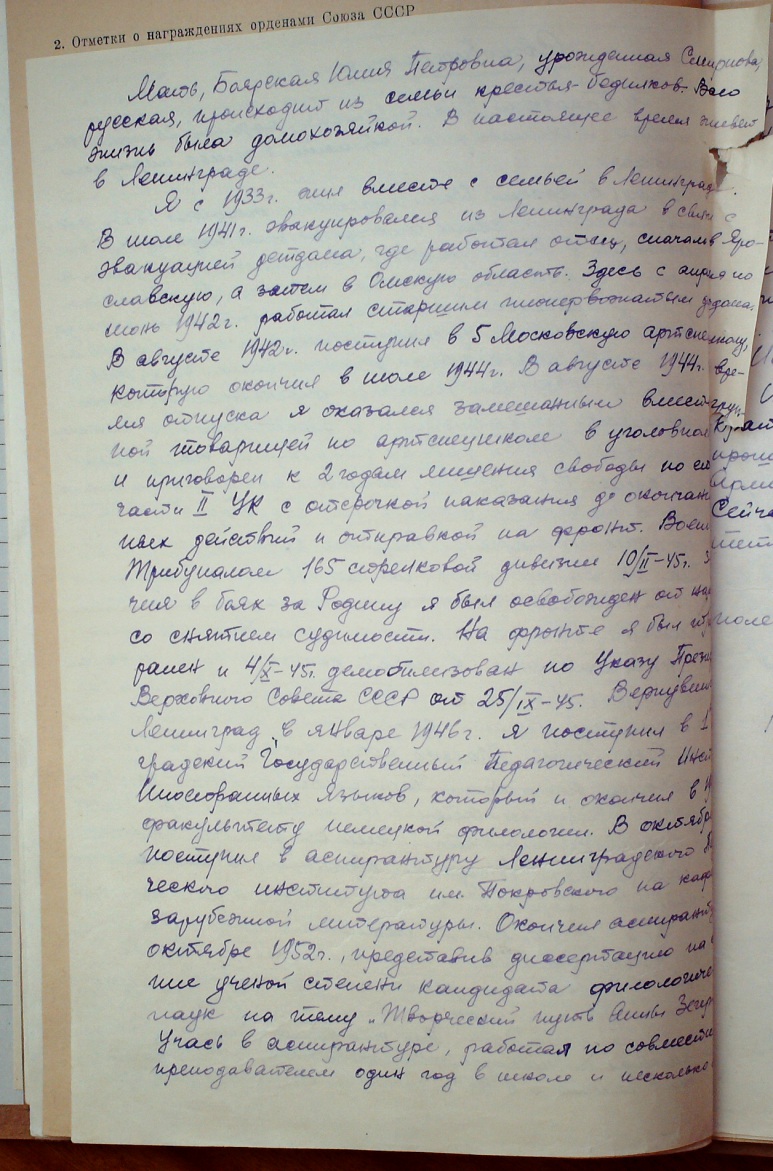 2. Отметки о награждениях орденами Союза СССР
Мать, Боярская Юлия Петровна, урожденная Смирнова,
русская, происходит из семьи крестьян-бедняков. Всю
жизнь была домохозяйкой. В настоящее время живет
в Ленинграде.
Я с 1933г. жил вместе с семьей в Ленинграде.
В июле 1941г. эвакуировался из Ленинграда в связи с
эвакуацией детдома, где работал отец, сначала в Яро-
славскую, а затем в Омскую область. Здесь с апреля по
июнь 1942г. работал старшим пионервожатым детдома.
В августе 1942г. поступил в 5 Московскую артспецшколу,
которую окончил в июле 1944г. В августе 1944г. вре-
мя отпуска я оказался замешанным вмест груп-
пой товарищей по артспецшколе в уголовном
и приговорен к 2 годам лишения свободы по
части II УК с отсрочкой наказания до окончан
ных действий и отправкой на фронт. Воен
Трибуналом 165 стрелковой дивизии 10/II-45г. з
чия в боях за Родину я был освобожден от на
со снятием судимости. На фронте я был
ранен и 4/X-45г. демобилизован по Указу През
Верховного Совета СССР от 25/IX-45. Вернувши
Ленинград, в январе 1946г. я поступил в 1
градский Государственный Педагогический Инст
Иностранных Языков, который и окончил в
факультету немецкой филологии. В октябр
поступил в аспирантуру Ленинградского
ческого института им. Покровского на каф
зарубежной литературы. Окончил аспирант
октябре 1952г., представив диссертацию на
ние ученой степени кандидата филологиче
наук на тему „Творческий путь Анны Зегер
Учась в аспирантуре, работал по совмести
преподавателем один год в школе и несколько
Сейча